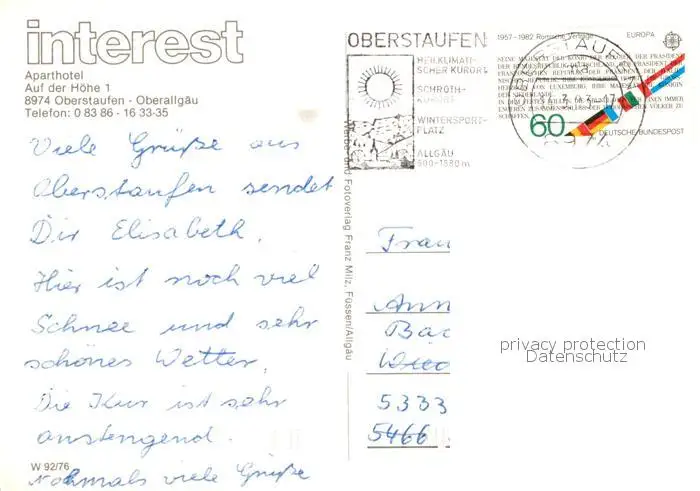 interest
Aparthotel
Auf der Höhe 1
8974 Oberstaufen - Oberallgäu
Telefon: 0 83 86 - 16 33-35
Viele Grüße aus
Oberstaufen sendet
Dir Elisabeth.
Hier ist noch viel
Schnee und sehr
schönes Wetter.
Die Kur ist sehr
anstengend.
Nochmals viele Grüße
W 92/76
Werbe- und Fotoverlag Franz Milz, Füssen/Allgäu
OBERSTAUFEN
HEILKLIMATI-
SCHER KURORT
SCHROTH-
KURORT
WINTERSPORT-
PLATZ
ALLGÄU
1957-1982 Römische Verträge EUROPA
60
DEUTSCHE BUNDESPOST
Frau
Ann
Bac
5333
5466
privacy protection
Datenschutz